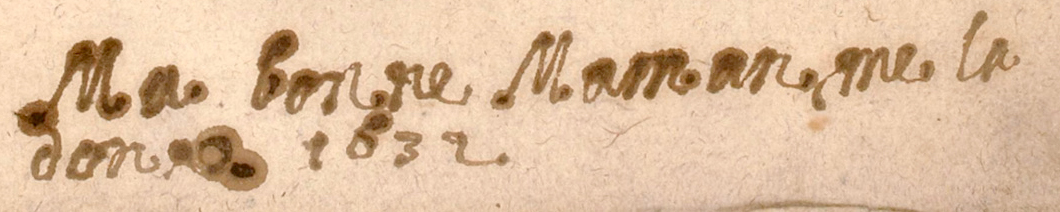 Ma bonne Maman me la
donne 1632